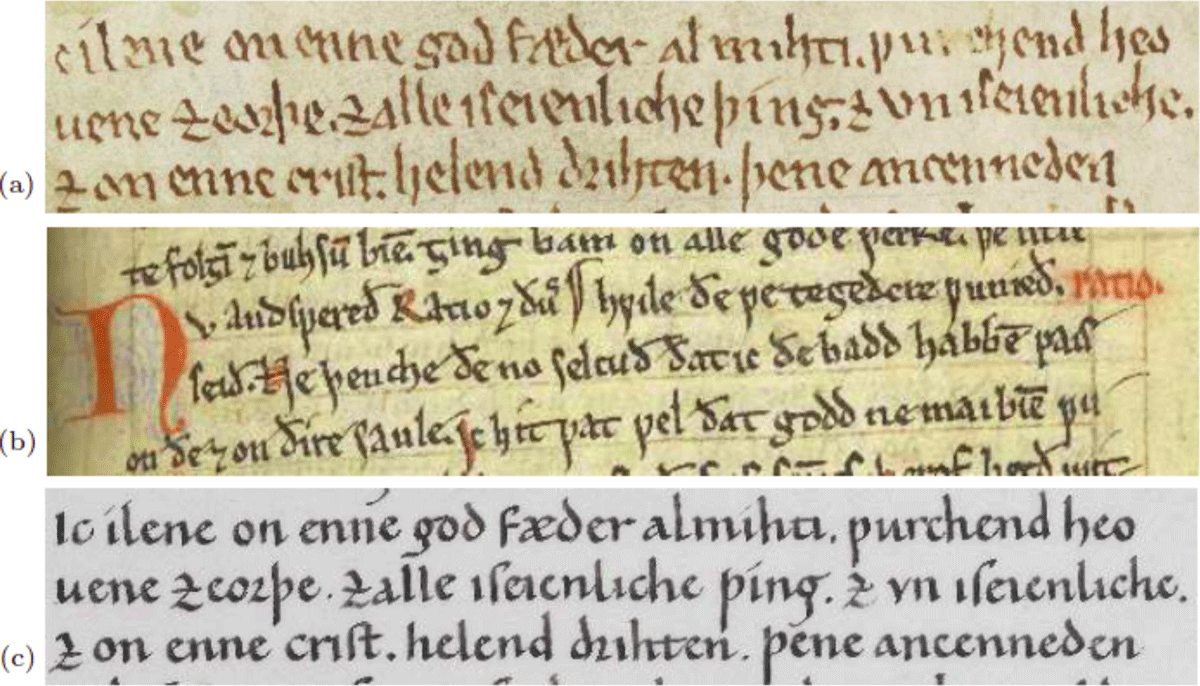 (a)
ilene on enne god fæder almihti. heo
uene ⁊ eorþe. ⁊ alle iseienliche þing; ⁊ vn iseienliche.
⁊ on enne crist. helend drihten. þene ancenneden
(b)
te folgī ⁊ buhsū bīe. on alle gode
Nv andsƿereð Ratio ⁊ hƿile ðe ƿe tegedere ƿunieð. ratio.
seið. Ne þenche ðe no selcuð ðat ic ðe habbē ƿas
on ðe ⁊ on ðire saule. Ic hit ƿat ƿel ðat godd ne mai bīe ƿu
(c)
Ic ilene on enne god fæder almihti. ƿurchend heo
uene ⁊ eorþe. ⁊ alle iseienliche þing. ⁊ vn iseienliche.
⁊ on enne crist. helend drihten. þene ancenneden